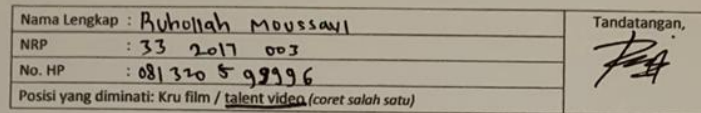 Nama Lengkap : Ruhollah Moussavi
Tandatangan,
NRP : 33 2017 003
No. HP : 081 320 5 99996
Posisi yang diminati: Kru film / talent video (coret salah satu)